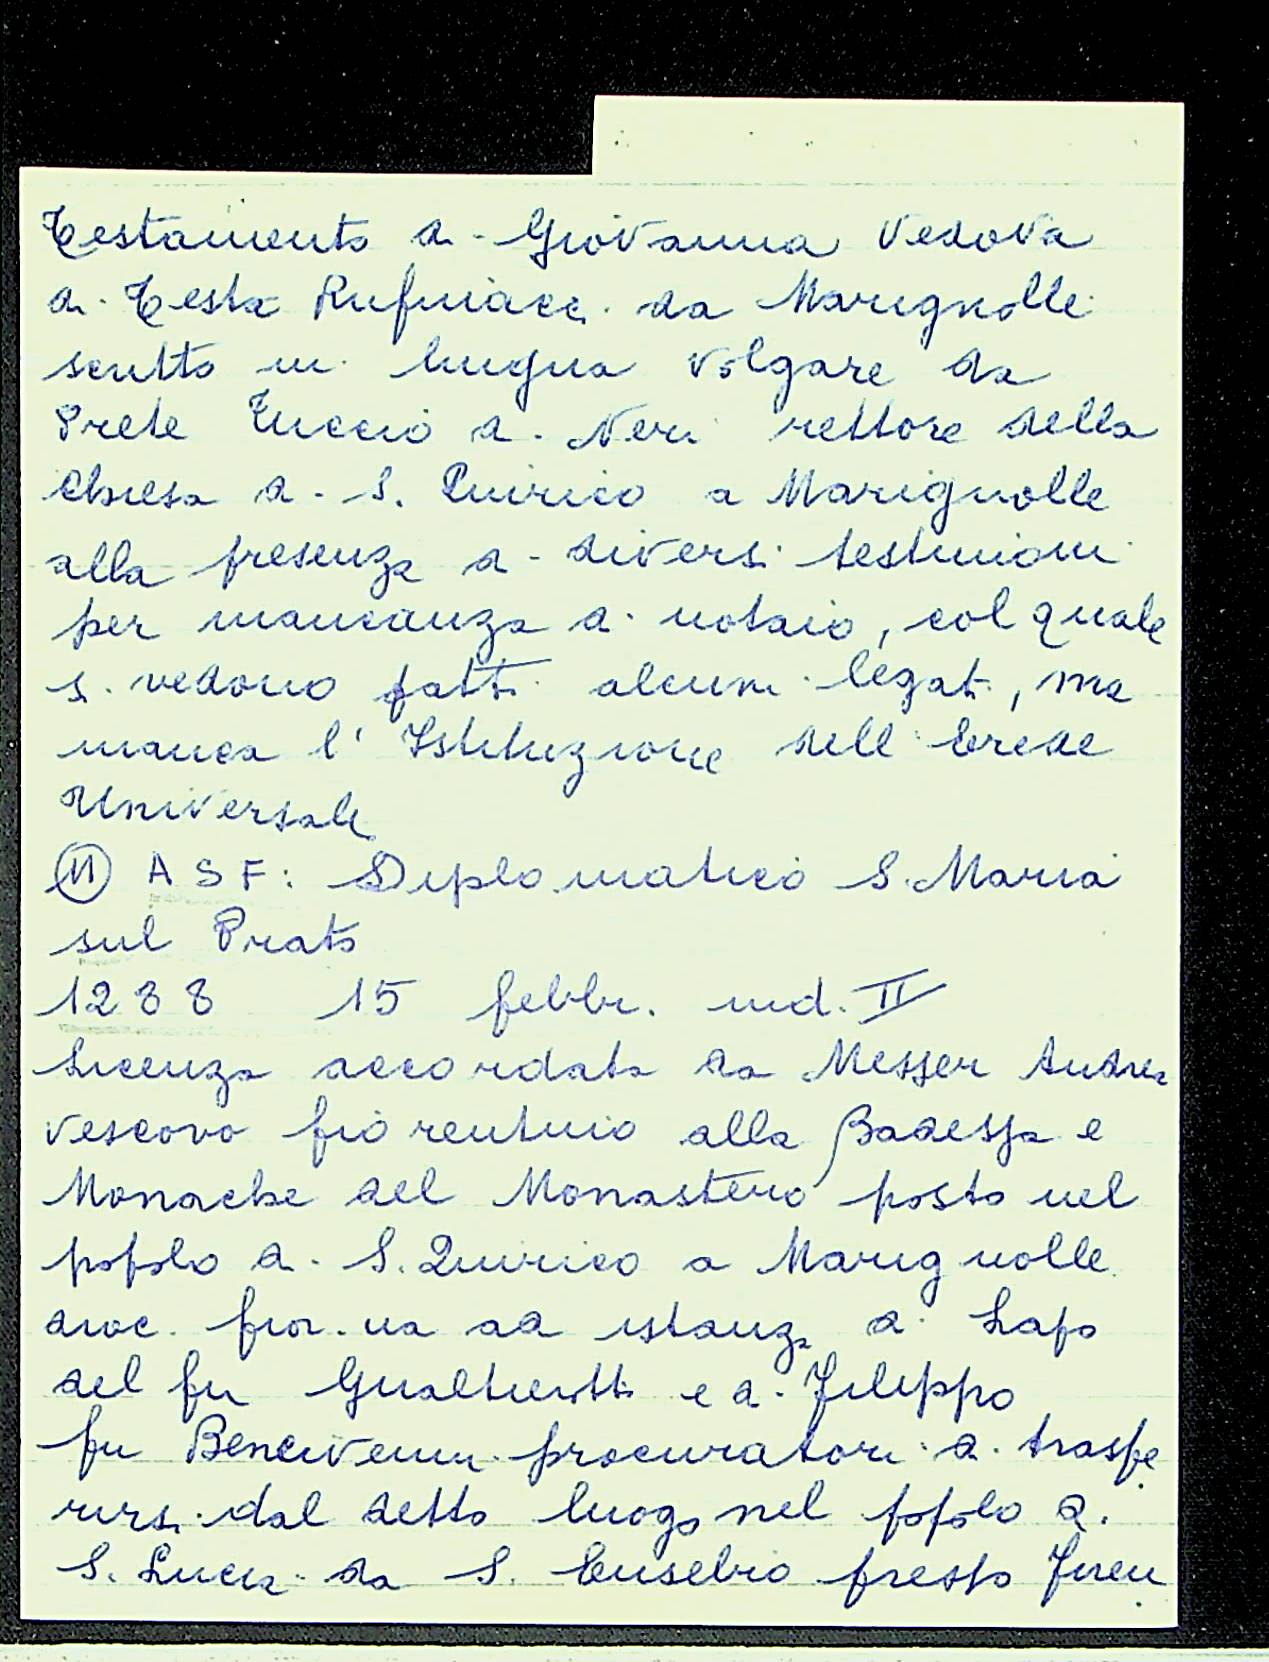 Testamento di Giovanna vedova
di Testa Rufiniacci da Marignolle
scritto in lingua volgare da
Prete Tuccio di Neri rettore della
chiesa di S. Quirico a Marignolle
alla presenza di diversi testimoni
per mancanza di notaio, col quale
si vedono fatti alcuni legati, ma
manca l' Istituzione dell' Erede
Universale
ASF: Diplomatico S. Maria
sul Prato
1288 15 febbr. ind. II
Licenza accordata da Messer Andrea
vescovo fiorentino alla Badessa e
Monache del Monastero posto nel
popolo di S. Quirico a Marignolle
dioc. fior.na ad istanza di Lapo
del fu Gualtierotti e di Filippo
fu Bencivenni procuratori di trasfe
rirsi dal detto luogo nel popolo di
S. Lucia da S. Eusebio presso Firen